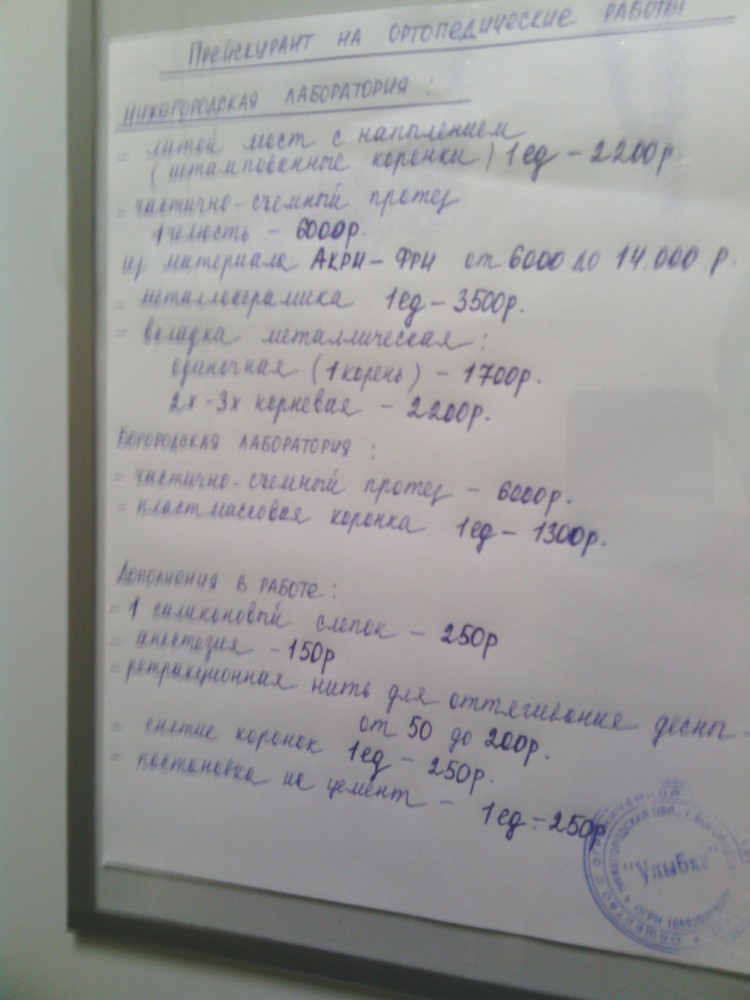 ПРЕЙСКУРАНТ НА ОРТОПЕДИЧЕСКИЕ РАБОТЫ
НИЖЕГОРОДСКАЯ ЛАБОРАТОРИЯ :
= литой мост с напылением
(штампованные коронки) 1ед – 2200р.
= частично-съемный протез
1 челюсть – 6000р.
из материала АКРИ-ФРИ от 6000 до 14.000 р.
= металлокерамика 1ед – 3500р.
= вкладка металлическая :
одиночная (1 корень) – 1700р.
2х-3х корневая – 2200р.
БОГОРОДСКАЯ ЛАБОРАТОРИЯ :
= частично-съемный протез – 6000р.
= пластмассовая коронка 1ед – 1300р.
ДОПОЛНЕНИЯ В РАБОТЕ :
= 1 силиконовый слепок – 250р
= анестезия – 150р
= ретракционная нить для оттягивания десны –
от 50 до 200р.
= снятие коронок 1ед – 250р.
= постановка на цемент – 1ед = 250р
ОБЩЕСТВО С ОГРАНИЧЕННОЙ
НИЖЕГОРОДСКАЯ ОБЛ.,
"Улыбка"
ОГРН